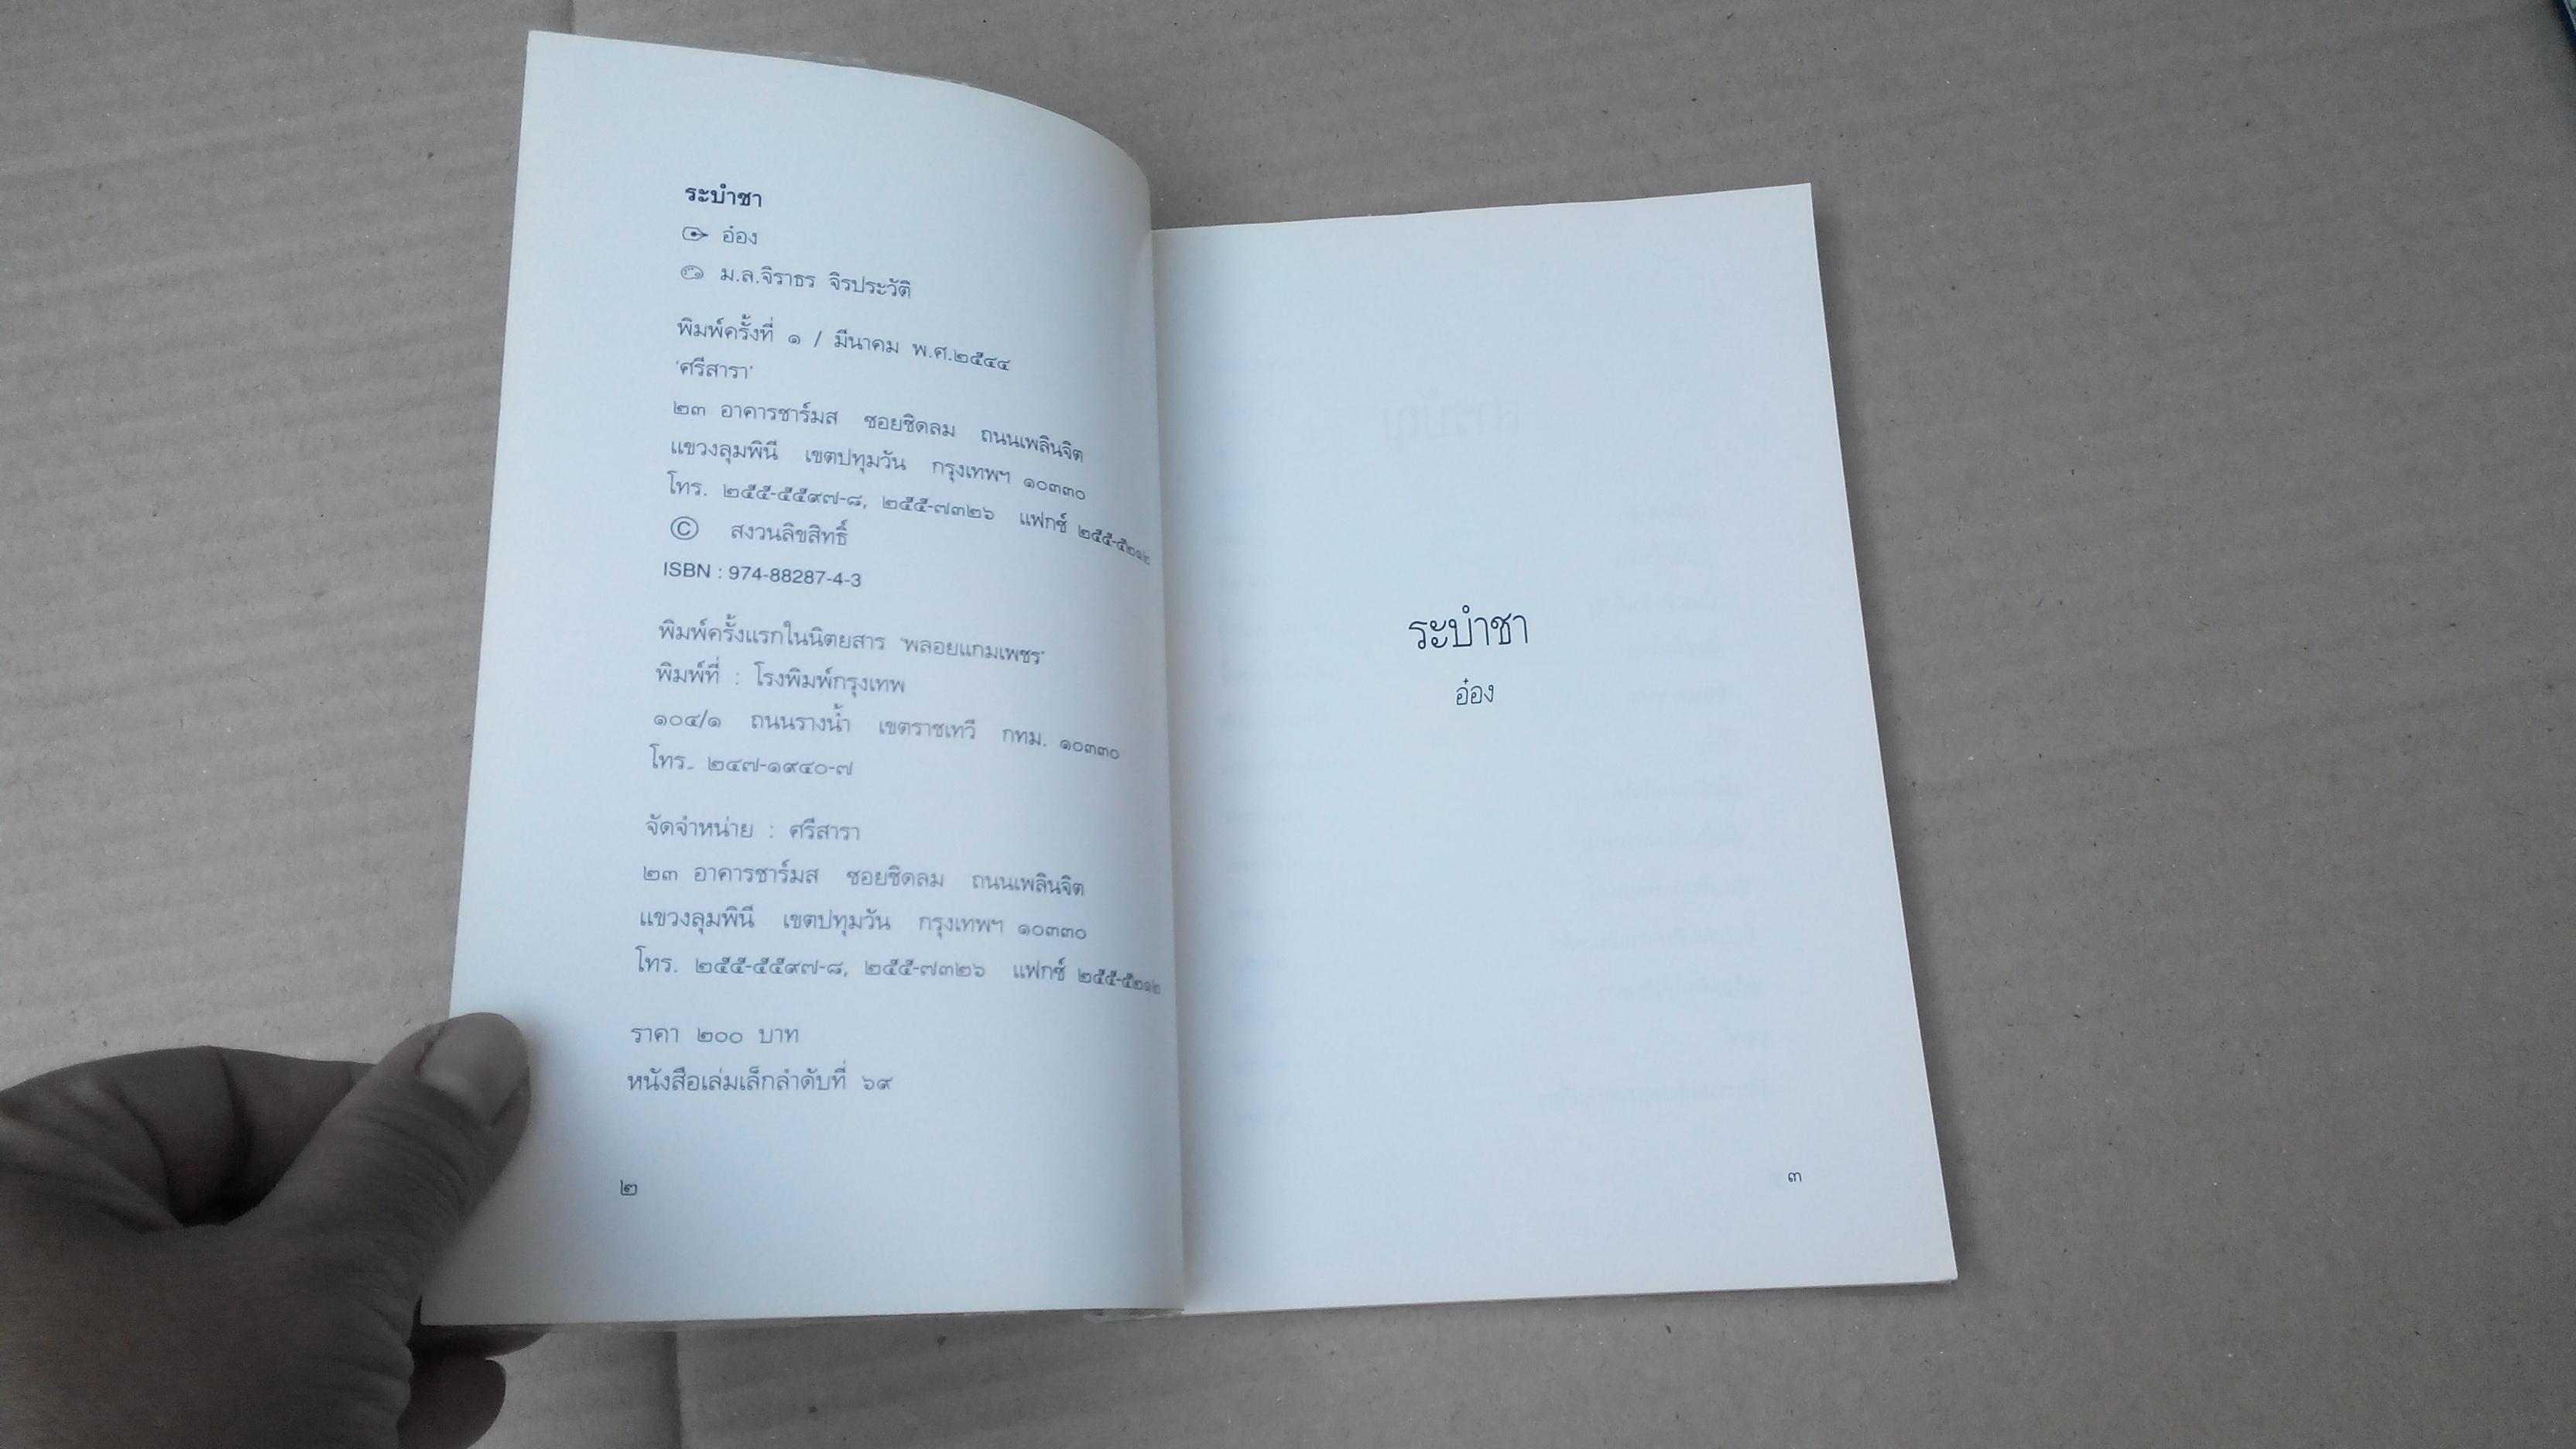 ระบำชา
อ๋อง
ม.ล.จิราธร จิรประวัติ
พิมพ์ครั้งที่ ๑ / มีนาคม พ.ศ.๒๕๔๔
'ศรีสารา'
๒๓ อาคารชาร์มส ซอยชิดลม ถนนเพลินจิต
แขวงลุมพินี เขตปทุมวัน กรุงเทพฯ ๑๐๓๓๐
โทร. ๒๕๕-๕๕๙๗-๘, ๒๕๕-๗๓๒๖ แฟกซ์ ๒๕๕-๕๒๑๒
© สงวนลิขสิทธิ์
ISBN : 974-88287-4-3
พิมพ์ครั้งแรกในนิตยสาร 'พลอยแกมเพชร'
พิมพ์ที่ : โรงพิมพ์กรุงเทพ
๑๐๔/๑ ถนนรางน้ำ เขตราชเทวี กทม. ๑๐๓๓๐
โทร.. ๒๔๗-๑๙๔๐-๗
จัดจำหน่าย : ศรีสารา
๒๓ อาคารชาร์มส ซอยชิดลม ถนนเพลินจิต
แขวงลุมพินี เขตปทุมวัน กรุงเทพฯ ๑๐๓๓๐
โทร. ๒๕๕-๕๕๙๗-๘, ๒๕๕-๗๓๒๖ แฟกซ์ ๒๕๕-๕๒๑๒
ราคา ๒๐๐ บาท
หนังสือเล่มเล็กลำดับที่ ๖๙
๒
ระบำชา
อ๋อง
๓